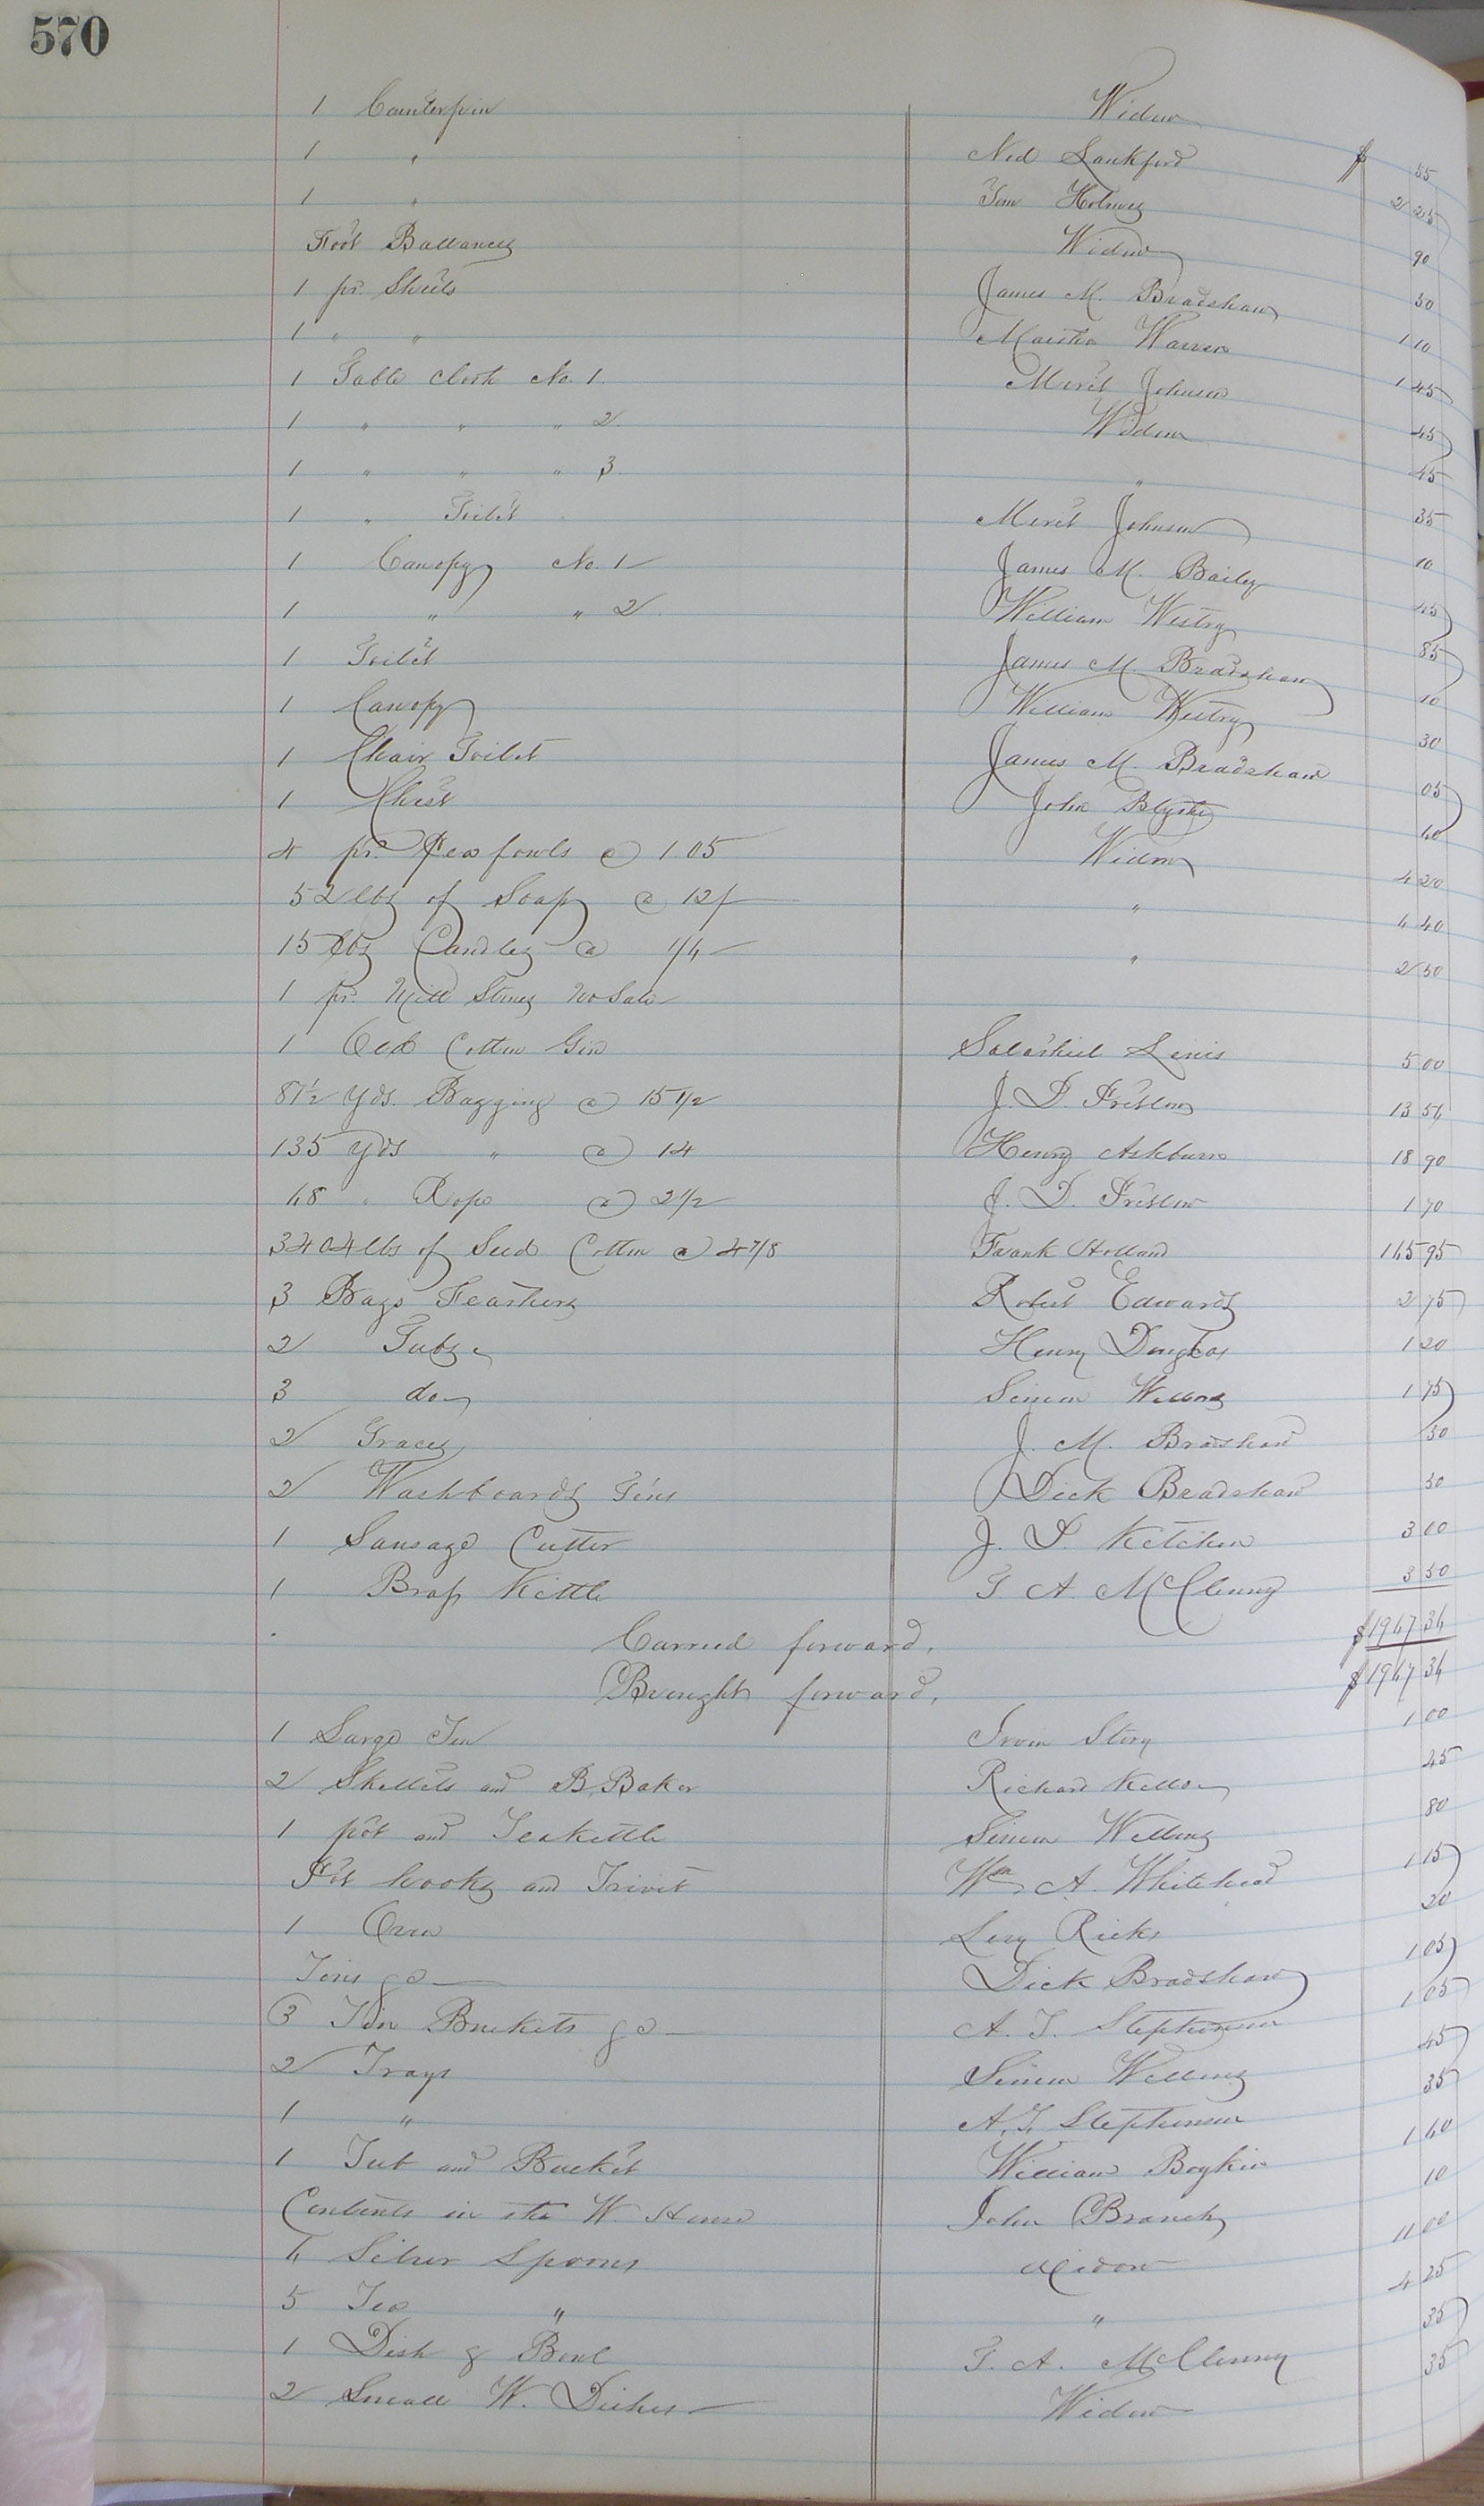 570
1 Counterpin Widow
1 " Ned Lankford $ 55
1 " Tom Holmes 2 25
Foot Ballances Widow 90
1 pr. Sheets James M. Bradshaw 50
1 " " Martha Warren 1 10
1 Table cloth No. 1. Merit Johnson 1 45
1 " " " 2. Widow 45
1 " " " 3. " 45
1 " Toilet Merit Johnson 35
1 Canopy No. 1 James M. Bailey 10
1 " " 2. William Westry 45
1 Toilet James M. Bradshaw 85
1 Canopy William Westry 10
1 Chair Toilet James M. Bradshaw 30
1 Chest John Blythe 05
4 pr. Pea fowls @ 1.05 Widow 60
52 lbs of Soap @ 12/ " 4 20
15 lbs Candles @ 1/4 " 4 40
1 pr. Mill Stones No Sale 2 50
1 Old Cotton Gin Salathiel Lewis 5 00
87½ Yds. Bagging @ 15 1/2 J. D. Preslow 13 56
135 Yds " @ 14 Henry Ashburn 18 90
68 " Rope @ 2 1/2 J. D. Preslow 1 70
3404 lbs of Seed Cotton @ 4 7/8 Frank Holland 165 95
3 Bags Feathers Robert Edwards 2 75
2 Tubs Henry Douglas 1 20
3 do Simon Wellons 1 75
2 Traces J. M. Bradshaw 30
2 Washboards Tins Dick Bradshaw 50
1 Sausage Cutter J. D. Ketchen 3 00
1 Brass Kettle T. A. McClenny 3 50
Carried forward, $1967 36
Brought forward, $1967 36
1 Large Tin Irvin Story 1 00
2 Skillets and B. Baker Richard Kello 45
1 pot and Teakettle Simon Wellons 80
Pot hooks and Trivit Wm A. Whitehead 1 15
1 Oven Levy Ricks 20
Tins &c Dick Bradshaw 1 05
3 Tin Buckets &c A. T. Stephenson 1 05
2 Trays Simon Wellons 45
1 " A. T. Stephenson 35
1 Tub and Bucket William Boykin 1 60
Contents in the W. House John Branch 10
6 Silver Spoons Widow 11 00
5 Tea " " 4 25
1 Dish & Bowl T. A. McClenny 35
2 Small W. Dishes Widow 35